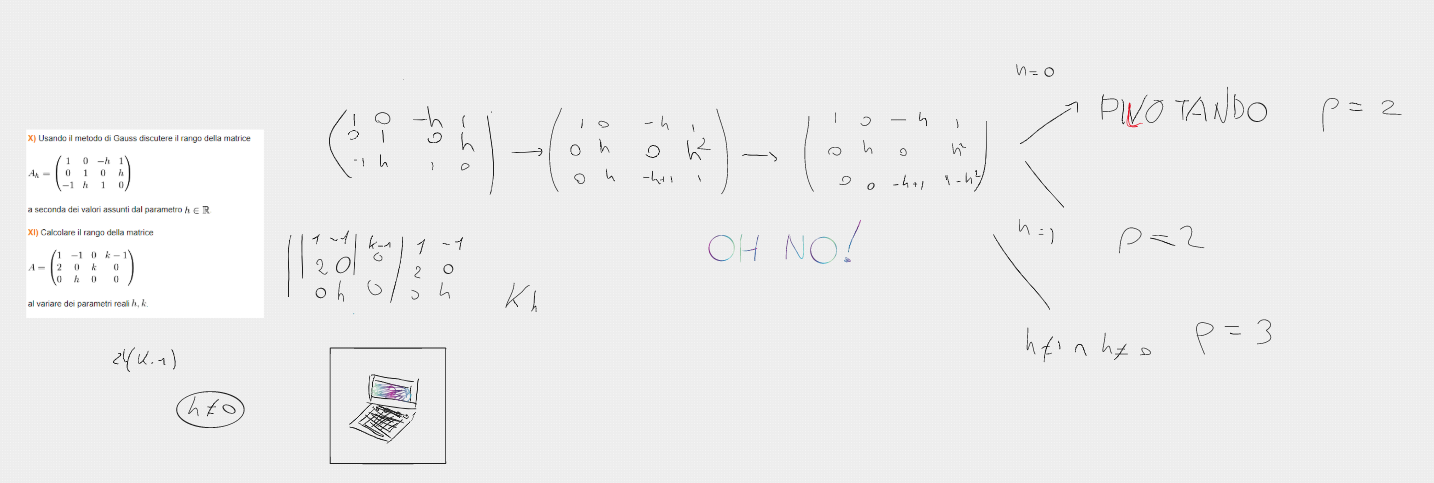 X) Usando il metodo di Gauss discutere il rango della matrice
A_h = ( 1 0 -h 1
0 1 0 h
-1 h 1 0 )
a seconda dei valori assunti dal parametro h ∈ ℝ
XI) Calcolare il rango della matrice
A = ( 1 -1 0 k-1
2 0 k 0
0 h 0 0 )
al variare dei parametri reali h, k.
( 1 0 -h 1
0 1 0 h
-1 h 1 0 )
→ ( 1 0 -h 1
0 h 0 h²
0 h -h+1 1 )
→ ( 1 0 -h 1
0 h 0 h²
0 0 -h+1 1-h² )
h=0
PIVOTANDO ρ = 2
h=1
ρ=2
h≠1 ∩ h≠0 ρ=3
OH NO!
| 1 -1 | k-1 | 1 -1
2 0 | 0 | 2 0
0 h 0 | 0 h
Kh
2h(k-1)
h≠0